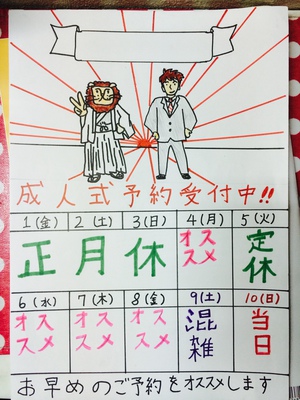 成人式予約受付中!!
1(金) 2(土) 3(日) 4(月) 5(火)
正 月 休 オススメ 定休
6(水) 7(木) 8(金) 9(土) 10(日)
オススメ オススメ オススメ 混雑 当日
お早めのご予約をオススメします